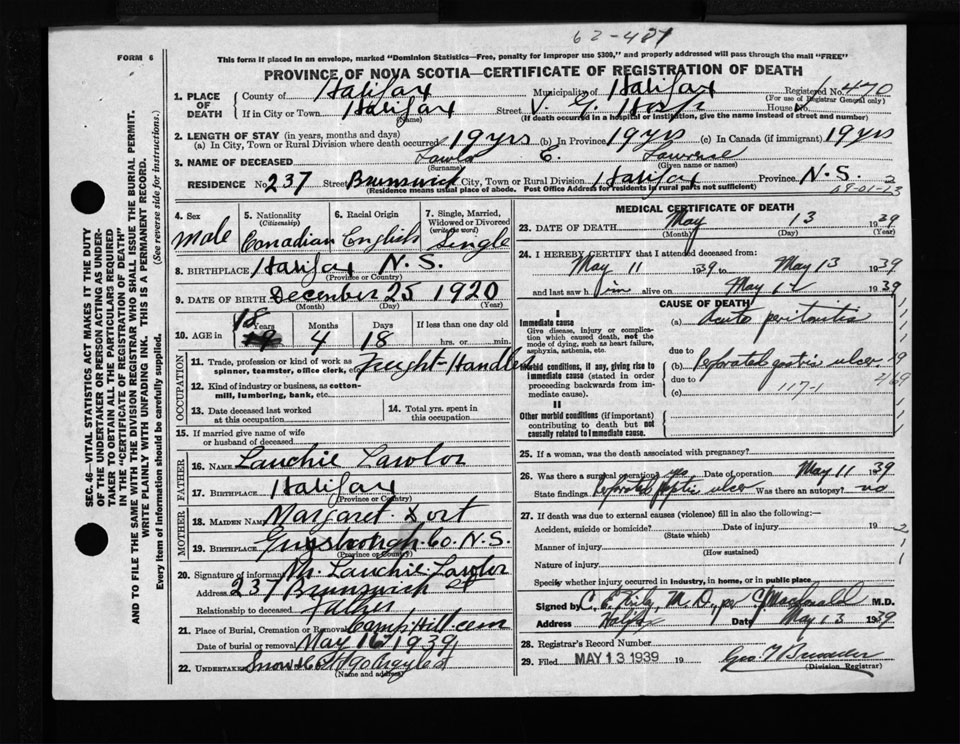 62-427
FORM 6
This form if placed in an envelope, marked "Dominion Statistics—Free, penalty for improper use $300," and properly addressed will pass through the mail "FREE"
PROVINCE OF NOVA SCOTIA—CERTIFICATE OF REGISTRATION OF DEATH
1. PLACE OF DEATH
County of Halifax Municipality of Halifax Registered No. 470
(For use of Registrar General only)
If in City or Town Halifax Street V. G. Hosp House No.
(Name) (If death occurred in a hospital or institution, give the name instead of street and number)
2. LENGTH OF STAY (in years, months and days)
(a) In City, Town or Rural Division where death occurred 19 yrs (b) In Province 19 yrs (c) In Canada (if immigrant) 19 yrs
3. NAME OF DECEASED Lawlor E. Lawrence
(Surname) (Given name or names)
RESIDENCE No 237 Street Brunswick City, Town or Rural Division Halifax Province N.S. 2
(Residence means usual place of abode. Post Office Address for residents in rural parts not sufficient)
09-01-23
4. Sex
Male
5. Nationality (Citizenship)
Canadian
6. Racial Origin
English
7. Single, Married, Widowed or Divorced (write the word)
Single
8. BIRTHPLACE Halifax N.S.
(Province or Country)
9. DATE OF BIRTH December 25 1920
(Month) (Day) (Year)
10. AGE in 18 Years 4 Months 18 Days If less than one day old
hrs. or min.
OCCUPATION
11. Trade, profession or kind of work as spinner, teamster, office clerk, etc. Freight Handler
12. Kind of industry or business, as cotton-mill, lumbering, bank, etc.
13. Date deceased last worked at this occupation
14. Total yrs. spent in this occupation
15. If married give name of wife or husband of deceased
FATHER
16. NAME Lauchie Lawlor
17. BIRTHPLACE Halifax
(Province or Country)
MOTHER
18. MAIDEN NAME Margaret
19. BIRTHPLACE Guysborough Co. N.S.
(Province or Country)
20. Signature of informant Mr. Lauchie Lawlor
Address 237 Brunswick St
Relationship to deceased Father
21. Place of Burial, Cremation or Removal Camp Hill cem
Date of burial or removal May 16 1939
22. UNDERTAKER Snow & Co 90 Argyle St
(Name and address)
MEDICAL CERTIFICATE OF DEATH
23. DATE OF DEATH May 13 1939
(Month) (Day) (Year)
24. I HEREBY CERTIFY that I attended deceased from:
May 11 1939 to May 13 1939
and last saw h im alive on May 12 1939
CAUSE OF DEATH
I
Immediate cause
Give disease, injury or complication which caused death, not the mode of dying, such as heart failure, asphyxia, asthenia, etc.
(a) Acute peritonitis
due to
Morbid conditions, if any, giving rise to immediate cause (stated in order proceeding backwards from immediate cause).
(b) Perforated gastric ulcer
due to
(c) 117-1
II
Other morbid conditions (if important) contributing to death but not causally related to immediate cause.
25. If a woman, was the death associated with pregnancy?
26. Was there a surgical operation? yes Date of operation May 11 1939
State findings Perforated peptic ulcer Was there an autopsy? no
27. If death was due to external causes (violence) fill in also the following:—
Accident, suicide or homicide? Date of injury 19
(State which)
Manner of injury
(How sustained)
Nature of injury
Specify whether injury occurred in industry, in home, or in public place
Signed by C. E. M.D., per C. Macdonald M.D.
Address Halifax Date May 13 1939
28. Registrar's Record Number
29. Filed MAY 13 1939 19 Geo.
(Division Registrar)
SEC. 46—VITAL STATISTICS ACT MAKES IT THE DUTY OF THE UNDERTAKER OR PERSON ACTING AS UNDERTAKER TO OBTAIN ALL THE PARTICULARS REQUIRED IN THE "CERTIFICATE OF REGISTRATION OF DEATH" AND TO FILE THE SAME WITH THE DIVISION REGISTRAR WHO SHALL ISSUE THE BURIAL PERMIT.
WRITE PLAINLY WITH UNFADING INK. THIS IS A PERMANENT RECORD.
Every item of information should be carefully supplied. (See reverse side for instructions.)